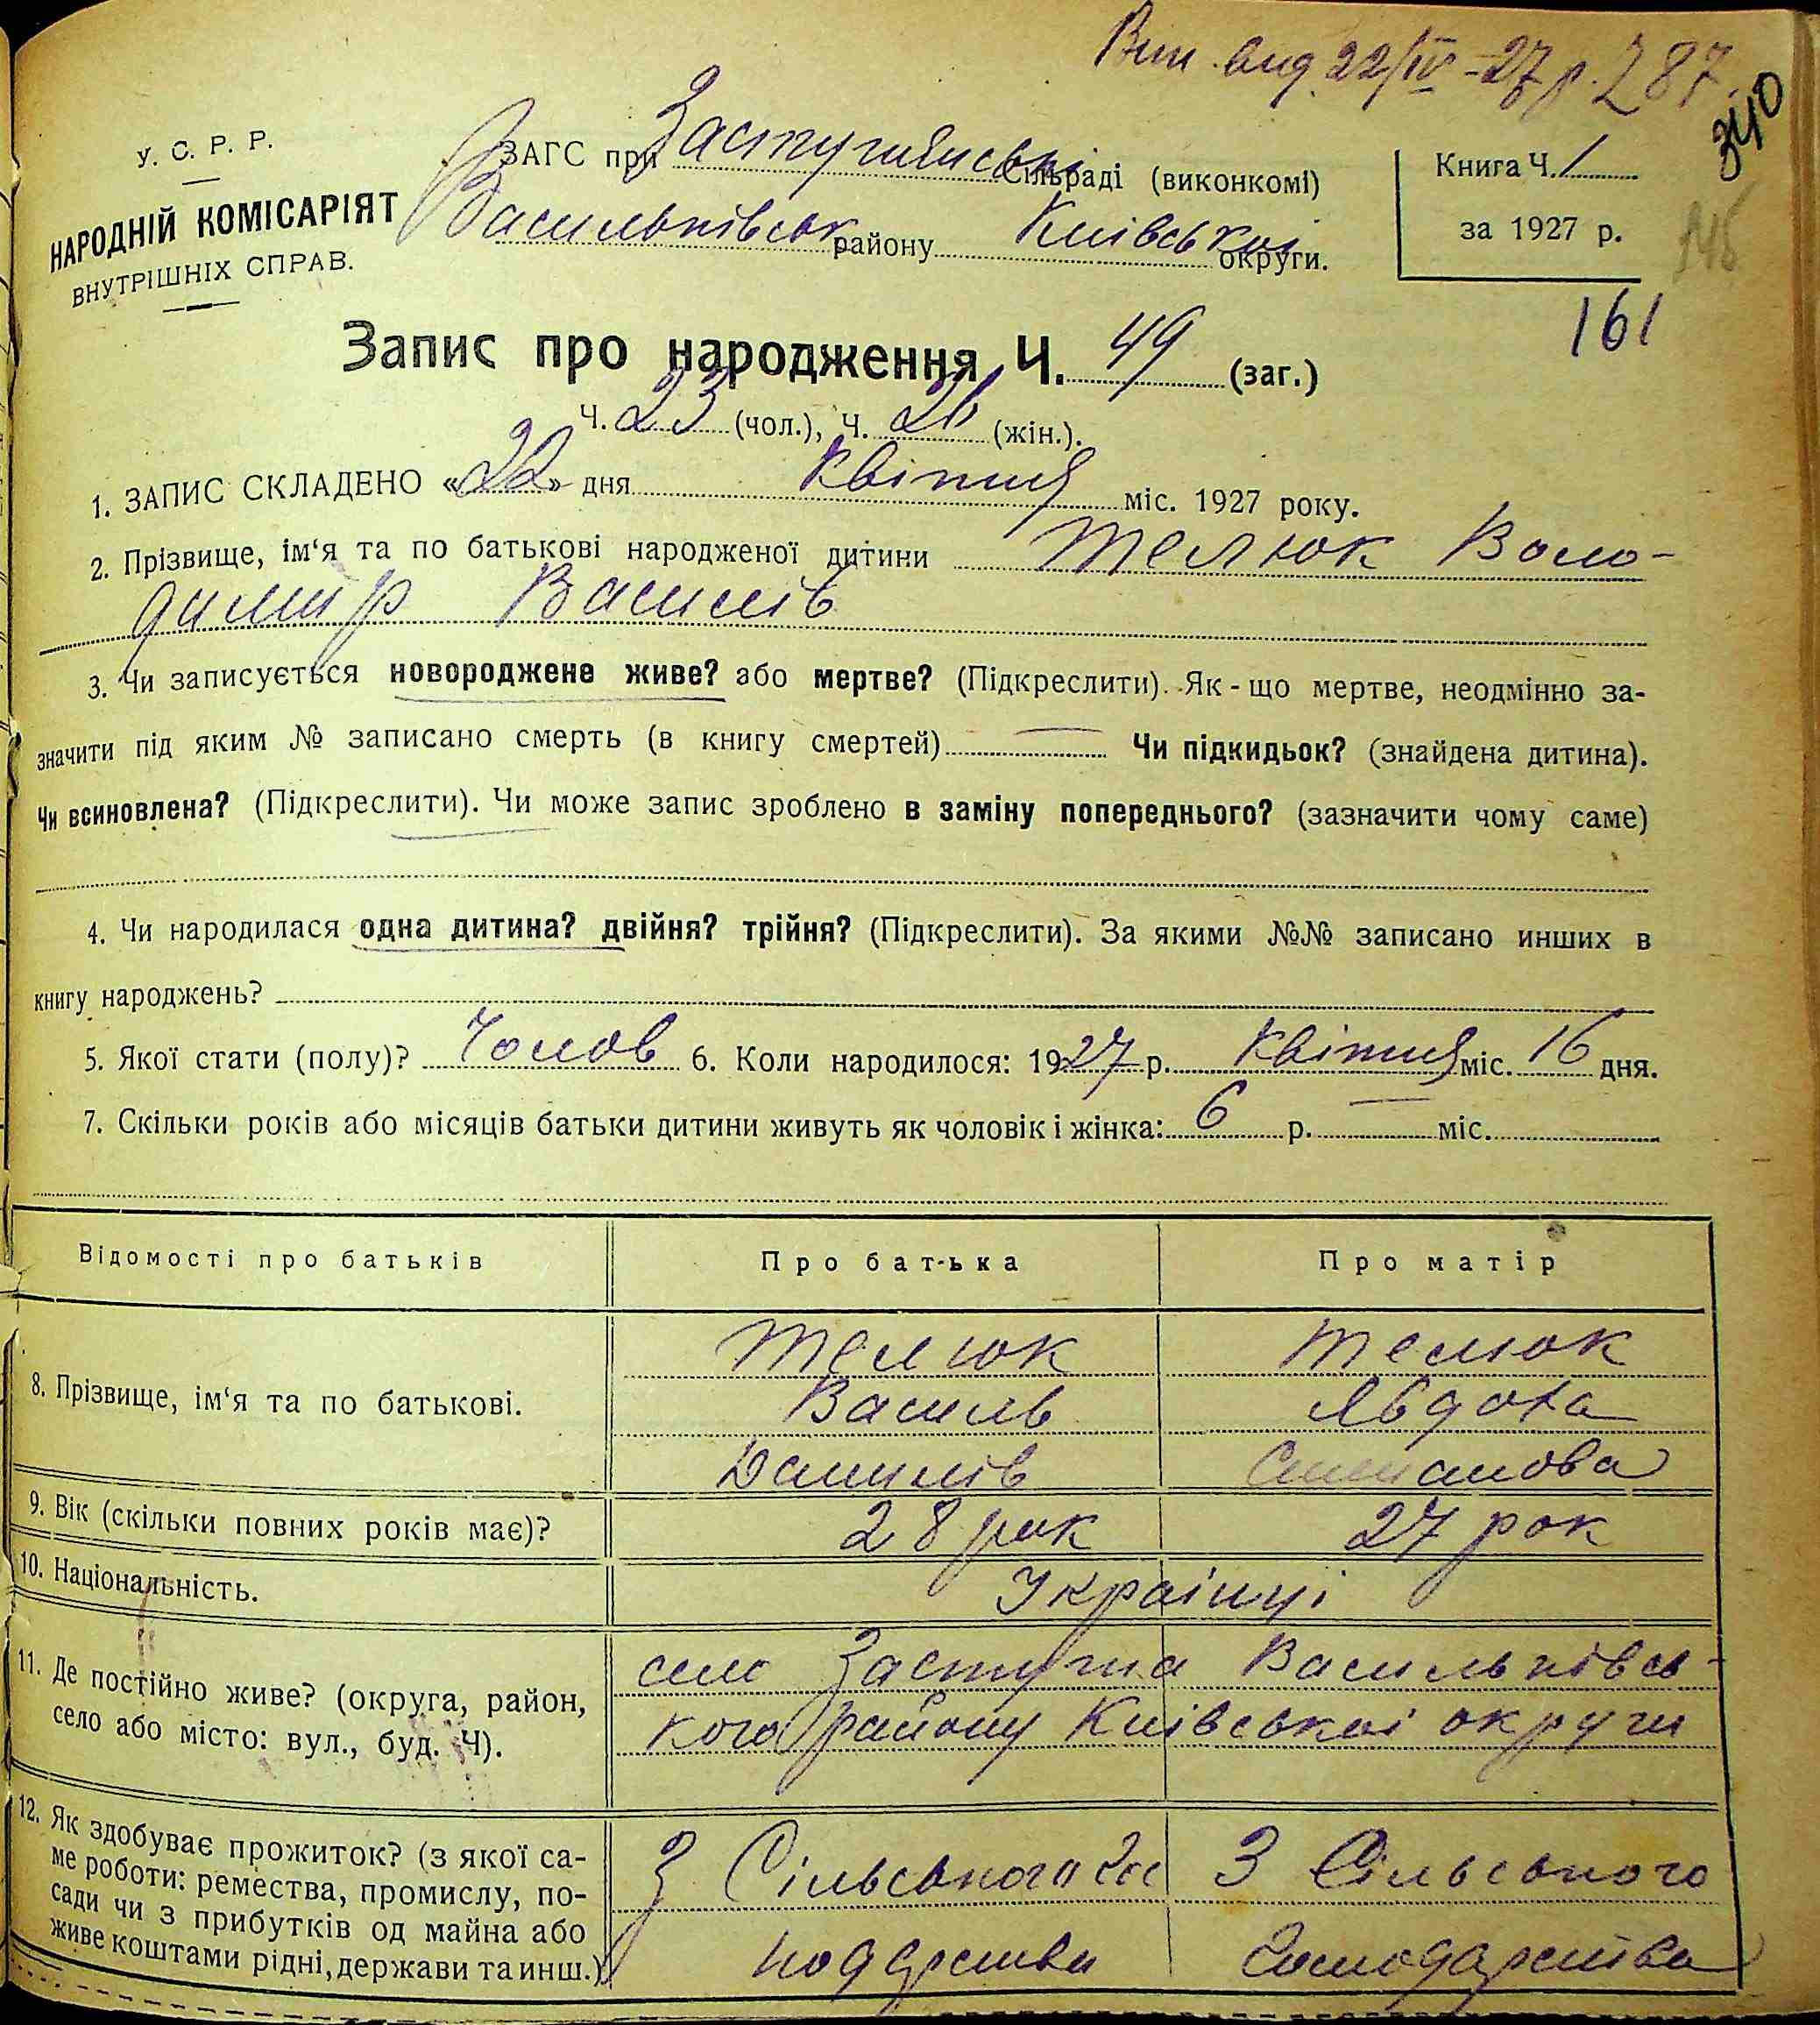 Вип. вид. 22/IV-27 р. 287.
340
У. С. Р. Р.
НАРОДНІЙ КОМІСАРІЯТ
ВНУТРІШНІХ СПРАВ.
ЗАГС при Застугнянській Сільраді (виконкомі)
Васильківськ району Київської округи.
Книга Ч. 1
за 1927 р.
145
161
Запис про народження Ч. 49 (заг.)
Ч. 23 (чол.), Ч. 26 (жін.).
1. ЗАПИС СКЛАДЕНО «22» дня квітня міс. 1927 року.
2. Прізвище, ім‘я та по батькові народженої дитини Телюк Воло-
димир Василів
3. Чи записується новороджене живе? або мертве? (Підкреслити). Як-що мертве, неодмінно за-
значити під яким № записано смерть (в книгу смертей) — Чи підкидьок? (знайдена дитина).
Чи всиновлена? (Підкреслити). Чи може запис зроблено в заміну попереднього? (зазначити чому саме)
4. Чи народилася одна дитина? двійня? трійня? (Підкреслити). За якими №№ записано инших в
книгу народжень?
5. Якої стати (полу)? Чолов 6. Коли народилося: 1927 р. квітня міс. 16 дня.
7. Скільки років або місяців батьки дитини живуть як чоловік і жінка: 6 р. — міс.
Відомості про батьків Про бать-ка Про матір
8. Прізвище, ім‘я та по батькові.
Телюк Телюк
Василь Явдоха
Данилів Степанова
9. Вік (скільки повних років має)? 28 рок 27 рок
10. Національність. Українці
11. Де постійно живе? (округа, район,
село або місто: вул., буд. Ч).
село Застугна Васильківсь-
кого району Київської округи
12. Як здобуває прожиток? (з якої са-
ме роботи: ремества, промислу, по-
сади чи з прибутків од майна або
живе коштами рідні, держави та инш.)
З Сільського гос З Сільського
подарства господарства